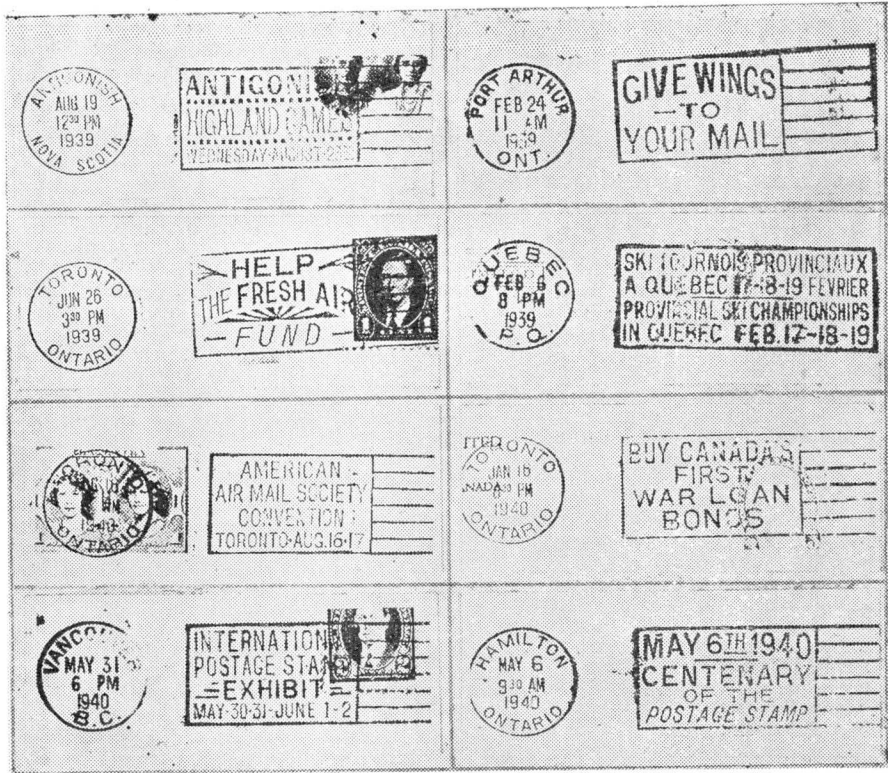 ANTIGONISH
AUG 19
12³⁰ PM
1939
NOVA SCOTIA
ANTIGONI
HIGHLAND GAMES
WEDNESDAY-AUGUST-23
PORT ARTHUR
FEB 24
11 AM
1939
ONT.
GIVE WINGS
—TO—
YOUR MAIL
TORONTO
JUN 26
3³⁰ PM
1939
ONTARIO
HELP
THE FRESH AIR
—FUND—
1 1
QUEBEC
FEB 6
8 PM
1939
P.Q.
SKI TOURNOIS PROVINCIAUX
A QUEBEC 17-18-19 FEVRIER
PROVINCIAL SKI CHAMPIONSHIPS
IN QUEBEC FEB. 17-18-19
TORONTO
1940
ONTARIO
AMERICAN
AIR MAIL SOCIETY
CONVENTION
TORONTO·AUG.16·17
TORONTO
JAN 16
PM
1940
ONTARIO
BUY CANADA'S
FIRST
WAR LOAN
BONDS
VANCOU
MAY 31
6 PM
1940
B.C.
INTERNATION
POSTAGE STAM
EXHIBIT
MAY·30·31-JUNE 1-2
HAMILTON
MAY 6
9³⁰ AM
1940
ONTARIO
MAY 6TH 1940
CENTENARY
OF THE
POSTAGE STAMP